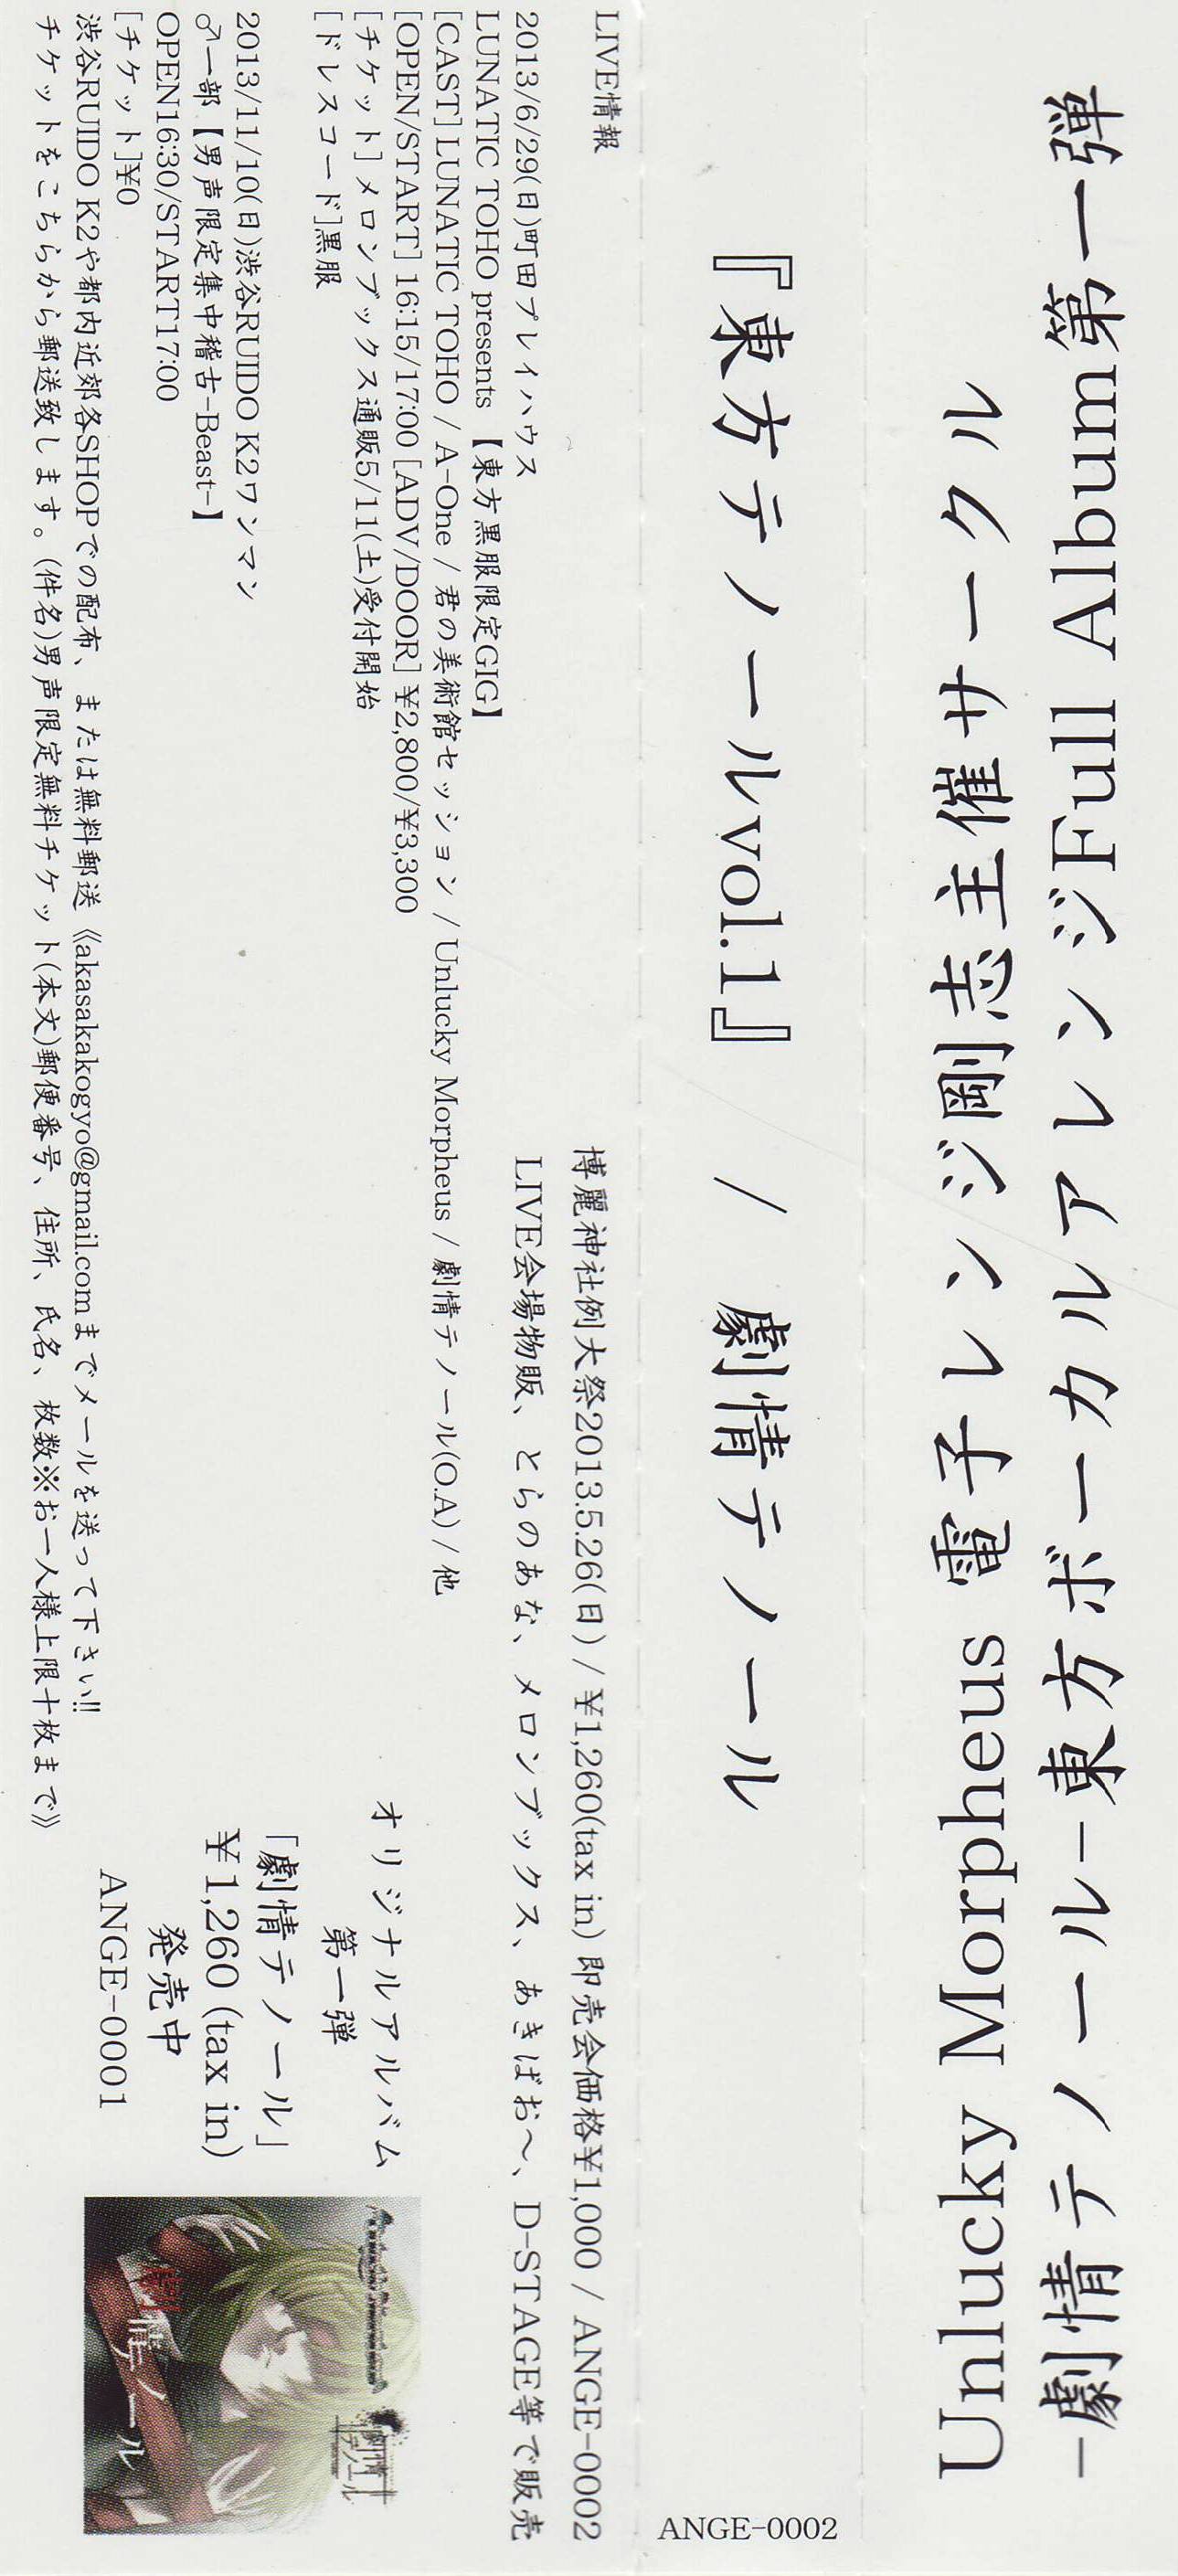 Unlucky Morpheus 電子レンジ剛志主催サークル
-劇情テノール-東方ボーカルアレンジFull Album第一弾
『東方テノールvol.1』 / 劇情テノール
ANGE-0002
博麗神社例大祭2013.5.26(日) / ¥1,260(tax in) 即売会価格¥1,000 / ANGE-0002
LIVE会場物販、とらのあな、メロンブックス、あきばお〜、D-STAGE等で販売
LIVE情報
2013/6/29(日)町田プレイハウス
LUNATIC TOHO presents 【東方黒服限定GIG】
[CAST] LUNATIC TOHO / A-One / 君の美術館セッション / Unlucky Morpheus / 劇情テノール(O.A) / 他
[OPEN/START] 16:15/17:00 [ADV/DOOR] ¥2,800/¥3,300
[チケット] メロンブックス通販5/11(土)受付開始
[ドレスコード]黒服
2013/11/10(日)渋谷RUIDO K2ワンマン
♂一部【男声限定集中稽古-Beast-】
OPEN16:30/START17:00
[チケット]¥0
渋谷RUIDO K2や都内近郊各SHOPでの配布、または無料郵送《akasakakogyo@gmail.comまでメールを送って下さい!!
チケットをこちらから郵送致します。(件名)男声限定無料チケット(本文)郵便番号、住所、氏名、枚数※お一人様上限十枚まで》
オリジナルアルバム
第一弾
「劇情テノール」
¥1,260 (tax in)
発売中
ANGE-0001
劇情テノール
劇情テノール